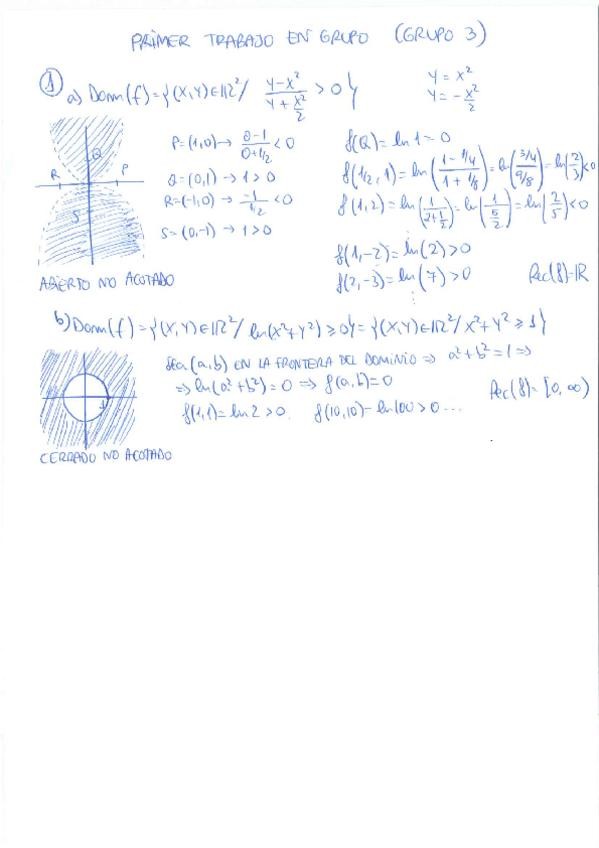 PRIMER TRABAJO EN GRUPO (GRUPO 3)
1
a) Dom(f)={(x,y)∈ℝ²/ (y-x²)/(y+x²/2) > 0}
y = x²
y = -x²/2
P=(1,0)→ (0-1)/(0+1/2) < 0
Q=(0,1)→ 1>0
R=(-1,0)→ -1/(1/2) < 0
S=(0,-1)→ 1>0
R P Q S
f(Q)= ln 1 = 0
f(1/2,1)= ln((1-1/4)/(1+1/8)) = ln((3/4)/(9/8)) = ln(2/3)<0
f(1,2)= ln(1/(2+1/2)) = ln(1/(5/2)) = ln(2/5)<0
f(1,-2)= ln(2)>0
f(2,-3)= ln(7)>0
⋮
Rec(f)=ℝ
ABIERTO NO ACOTADO
b) Dom(f)={(x,y)∈ℝ²/ ln(x²+y²) ≥ 0}={(x,y)∈ℝ²/ x²+y² ≥ 1}
Sea (a,b) EN LA FRONTERA DEL DOMINIO ⇒ a²+b²=1 ⇒
⇒ ln(a²+b²)=0 ⇒ f(a,b)=0
f(1,1)= ln 2 > 0. f(10,10)= ln 100 > 0 ...
Rec(f)= [0,∞)
1
CERRADO NO ACOTADO